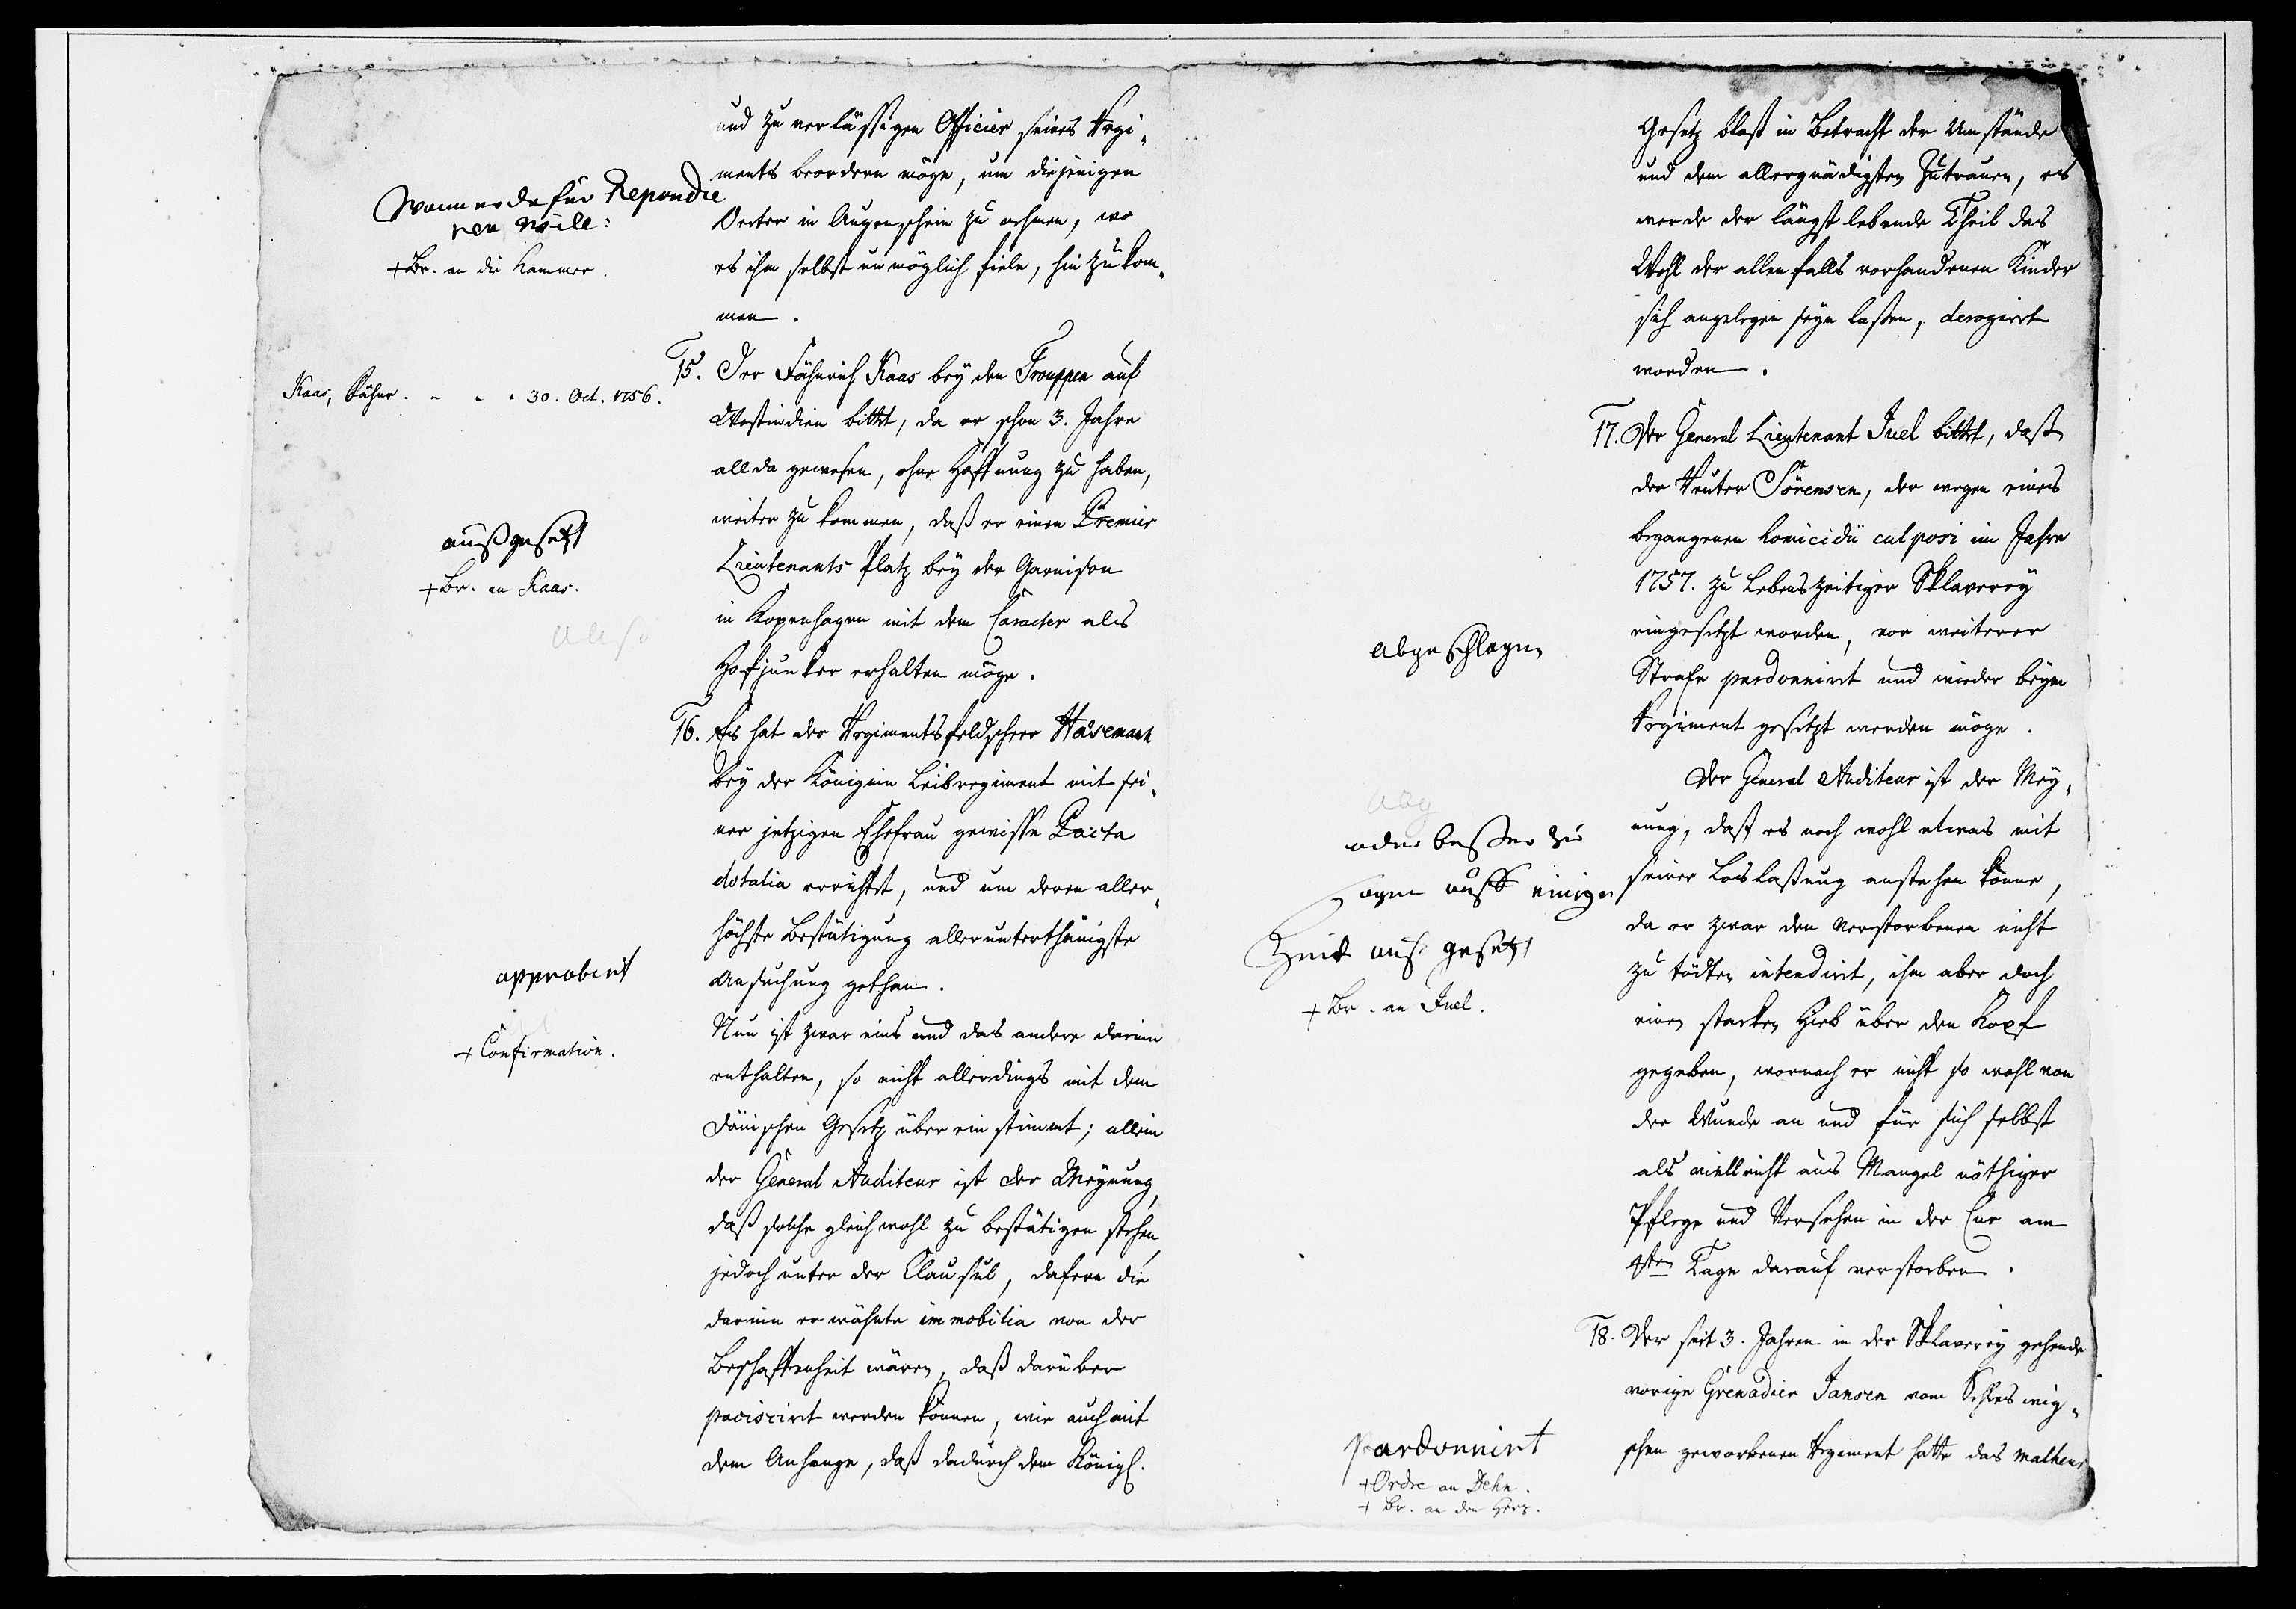 und zu verläßigen Officier seines Regi-
ments beordern möge, um diejenigen
Oerter in Augenschein zu nehmen, wo
es ihm selbst unmöglich fiele, hin zu kom-
men.
Wann er dafür Repondie
ren wille:
+ Br. an die Kammer.
15. Der Fähnrich Kaas bey den Trouppen auf
Westindien bittet, da er schon 3. Jahre
allda gewesen, ohne Hoffnung zu haben,
weiter zu kommen, daß er einen Premier
Lieutenants Platz bey der Garnison
in Kopenhagen mit dem Caracter als
Hofjunker erhalten möge.
Kaas, Fähnr. - - - 30. Oct. 1756.
außgesetzt
+ Br. an Kaas.
16. Es hat der Regimentsfeldscheer Hasemann
bey der Königin Leibregiment mit sei-
ner jetzigen Ehefrau gewisse Pacta
dotalia errichtet, und um deren aller-
höchste Bestätigung allerunterthänigste
Ansuchung gethan.
Nun ist zwar eins und das andere darinn
enthalten, so nicht allerdings mit dem
Dänischen Gesetz über ein stimmt; allein
der General Auditeur ist der Meynung,
daß solche gleichwohl zu bestätigen stehen,
jedoch unter der Clausul, dafern die
darinn erwähnte immobilia von der
Beschaffenheit wären, daß darüber
paciscirt werden können, wie auch mit
dem Anhange, daß dadurch dem Königl.
approbirt
+ Confirmation.
Gesetz bloß in Betracht der Umstände
und dem allergnädigsten Zutrauen, es
werde der längst lebende Theil das
Wohl der allenfalls vorhandenen Kinder
sich angelegen seyn laßen, derogirt
worden.
17. Der General Lieutenant Juel bittet, daß
der Reuter Sörensen, der wegen eines
begangenen homicidii culposi im Jahre
1757. zu Lebenszeitiger Sklaverey
eingesetzt worden, vor weiterer
Strafe pardonnirt und wieder beym
Regiment gesetzt werden möge.
abgeschlagen
Der General Auditeur ist der Mey-
nung, daß es noch wohl etwas mit
seiner Loslaßung anstehen könne,
da er zwar den Verstorbenen nicht
zu tödten intendirt, ihm aber doch
einen starken Hieb über den Kopf
gegeben, wornach er nicht so wohl von
der Wunde an und für sich selbst
als vielleicht aus Mangel nöthiger
Pflege und Versehen in der Cur am
4ten Tage darauf verstorben.
oder beßer zu
sagen auff einige
Zeit auß gesetzt
+ Br. an Juel.
18. Der seit 3. Jahren in der Sklaverey gehende
vorige Grenadier Jansen vom Schleswig-
schen geworbenen Regiment hatte das malheur
pardonnirt
+ Ordre an Dehn.
+ Br. an den Herz.